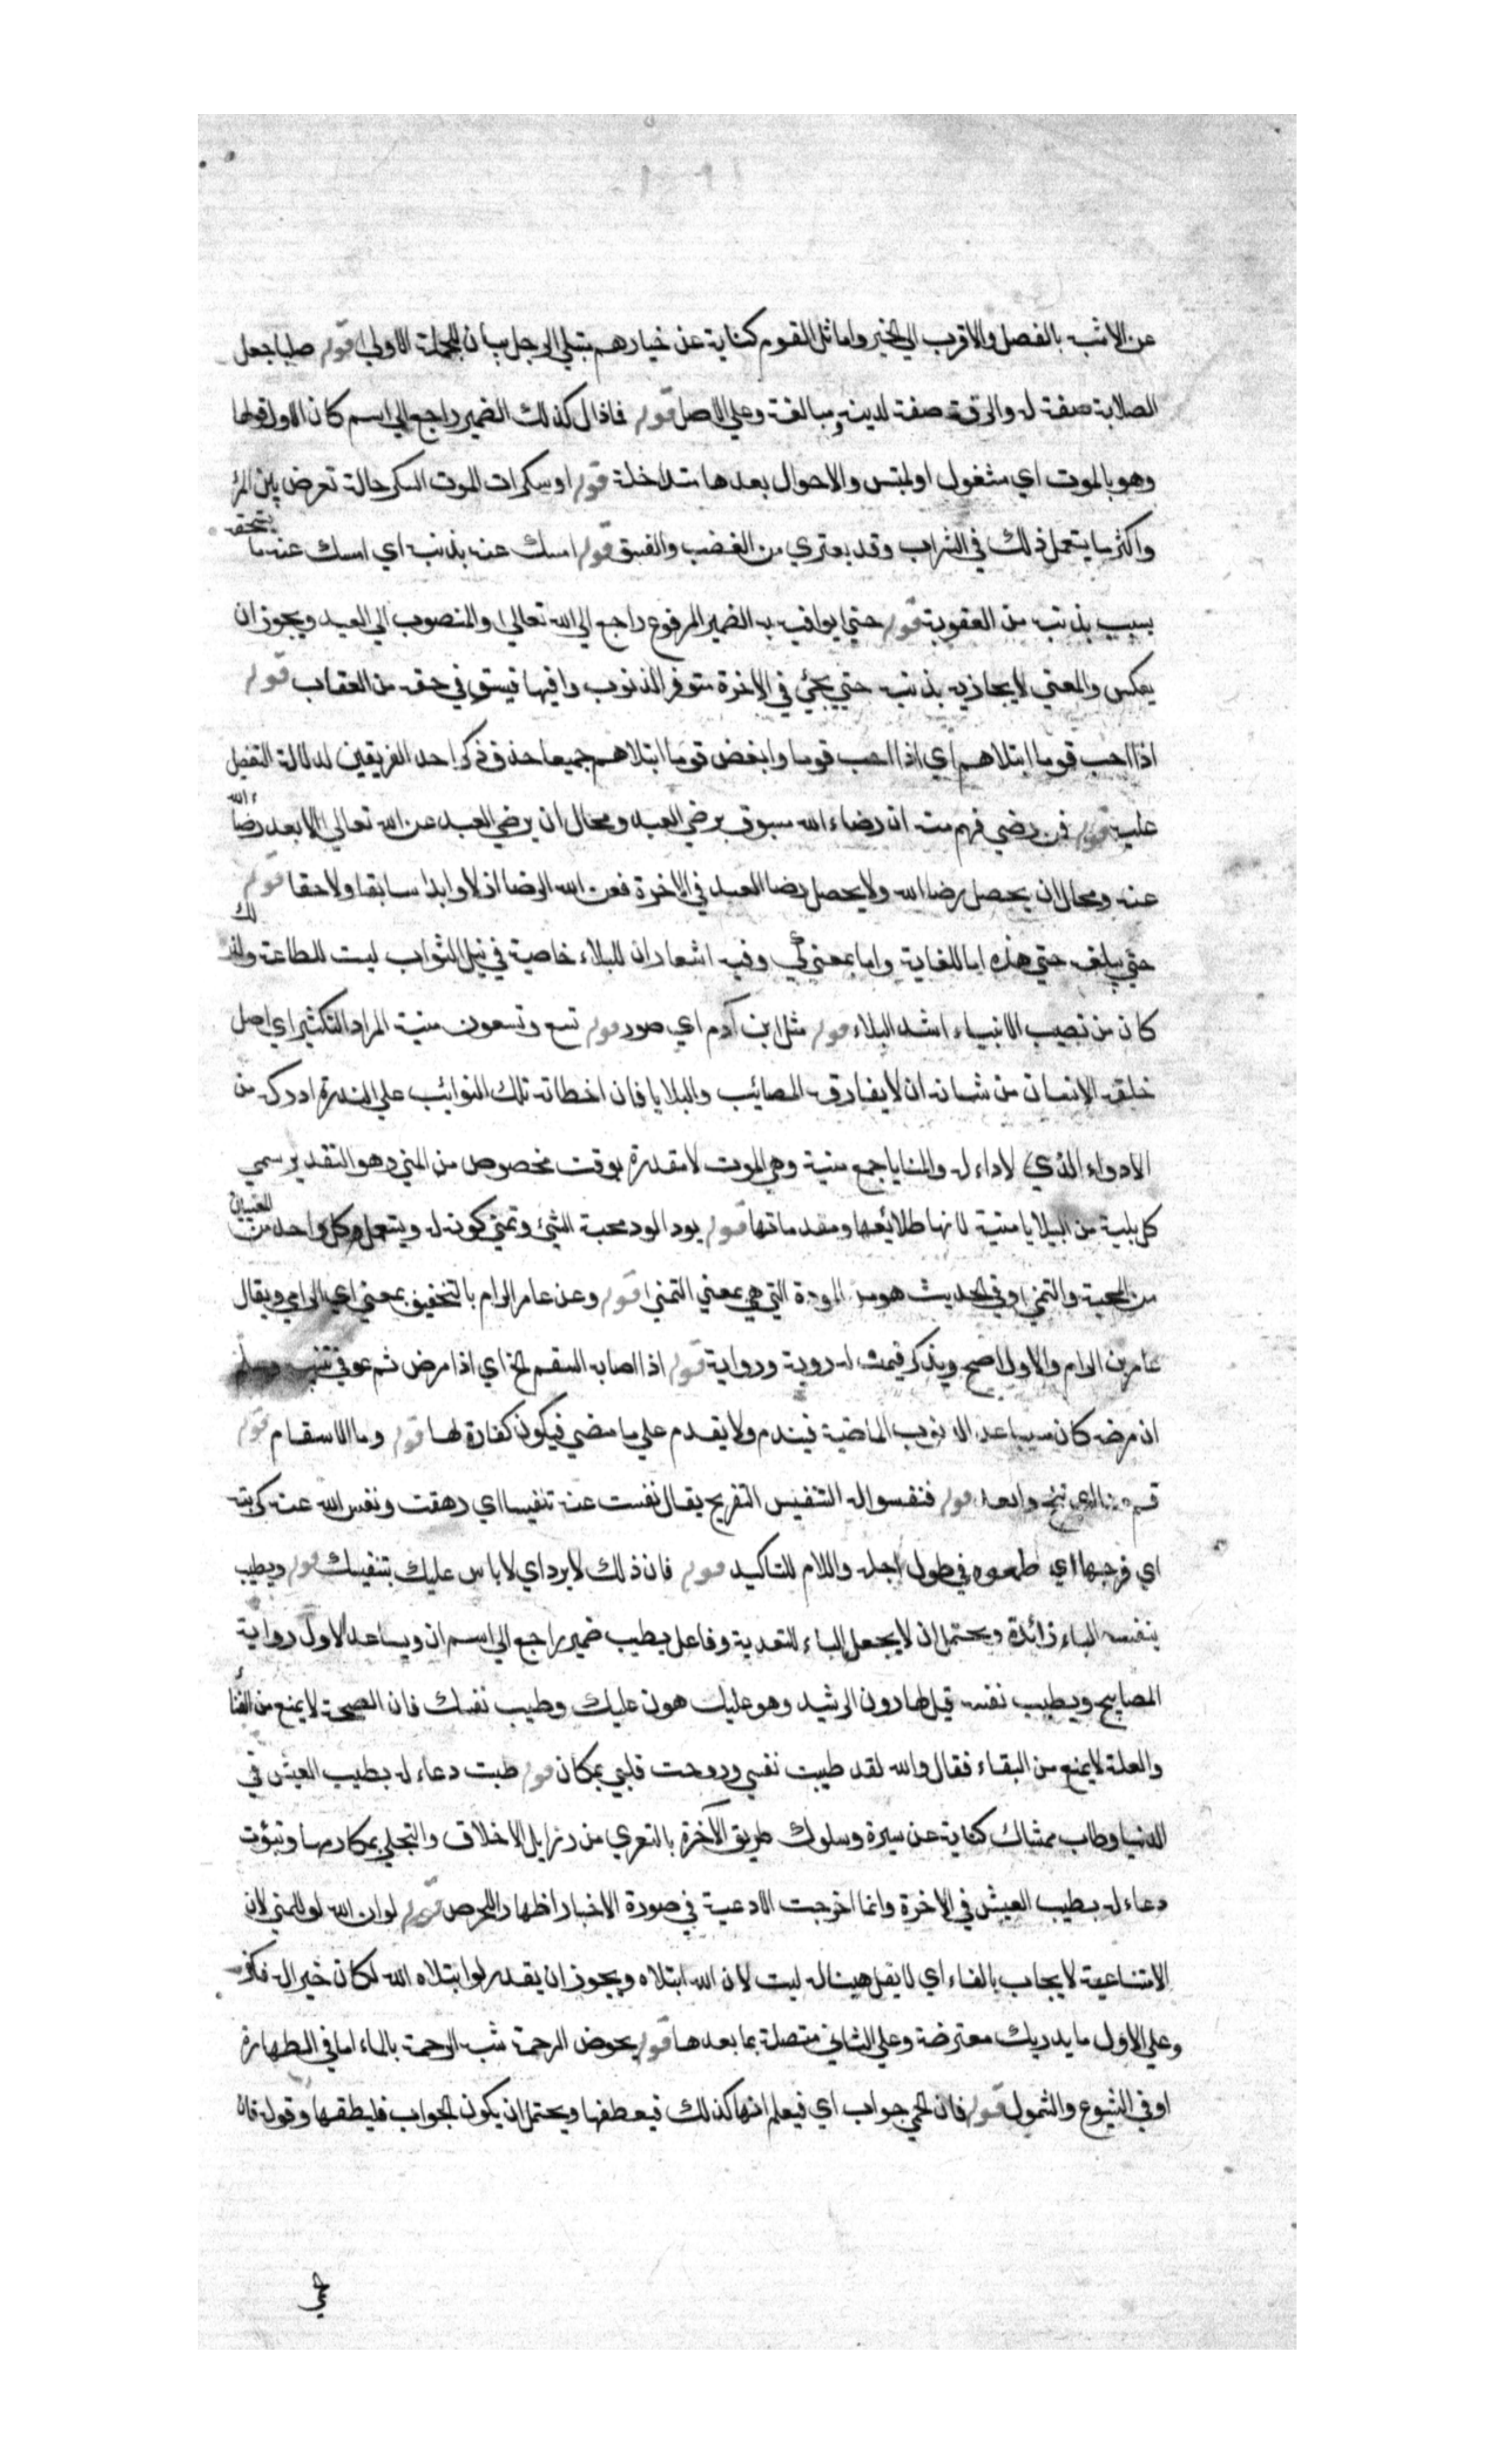 عن الاشبه بالفضل والاقرب الي الخير واماثل القوم كناية عن خيارهم يبتلي الرجل بيان للجملة الاولي قوله صلبا جعل
الصلابة صفة له والرقة صفة لدينه مبالغة وعلي الاصل قوله فماذال كذلك الضمير راجع الي اسم كان الاول قولها
وهو بالموت اي مشغول او ملتبس والاحوال بعدها متداخلة قوله او سكرات الموت السكر حالة تعرض بين المرء
واكثر ما يستعمل ذلك في الشراب وقد يعتري من الغضب والعشق قوله امسك عنه بذنبه اي امسك عنه ما يستحقه
بسبب بذنبه من العقوبة قوله حتي يوافيه به الضمير المرفوع راجع الي الله تعالي والمنصوب الي العبد ويجوز ان
يعكس والمعني لا يجازيه بذنبه حتي يجئ في الاخرة متوفر الذنوب وافيها فيستوفي حقه من العقاب قوله
اذا احب قوما ابتلاهم اي اذا احب قوما وابغض قوما ابتلاهم جميعا حذف ذكر احد الفريقين لدلالة التفصيل
عليه قوله فمن رضي فهم منه ان رضاء الله مسبوق برضي العبد ومحال ان يرضي العبد عن الله تعالي الا بعد رضاء الله
عنه ومحال ان يحصل رضا الله ولا يحصل رضا العبد في الاخرة فعن الله الرضا ازلا وابدا سابقا ولاحقا قوله
حتي يبلغه حتي هذه اما للغاية واما بمعني كي وفيه اشعار ان للبلاء خاصية في نيل الثواب ليست للطاعة ولذلك
كان من نصيب الانبياء اشد البلاء قوله مثل ابن آدم اي صور قوله تسع وتسعون منية المراد التكثير اي اصل
خلقه الانسان من شانه ان لا يفارقه المصائب والبلايا فان اخطاته تلك النوائب علي الندرة ادركه من
الادواء الذي لا داء له والمنايا جمع منية وهي الموت لانها مقدرة بوقت مخصوص من المني وهو التقدير سمي
كل بلية من البلايا منية لانها طلائعها ومقدماتها قوله يود الود محبة الشئ وتمني كونه له ويستعمل في كل واحد من المعنيين
من المحبة والتمني وفي الحديث هو من المودة التي هي بمعني التمني قوله وعن عامر الرام بالتخفيف بمعني الرامي ويقال
عامر بن الرام والاول اصح ويذكر فيمن له روية ورواية قوله اذا اصابه السقم الخ اي اذا مرض ثم عوفي تنبه وعلم
ان مرضه كان مسببا عن الذنوب الماضية فيندم ولا يقدم علي ما مضي فيكون كفارة لها قوله وما الاسقام قوله
قم عنا اي تنح وابعد قوله فنفسوا له التنفيس التفريج يقال نفست عنه تنفيسا اي رفهت ونفس الله عنه كربته
اي فرجها اي طمعوه في طول اجله واللام للتاكيد قوله فان ذلك لا يرد اي لا باس عليك بتنفيسك قوله ويطيب
بنفسه الباء زائدة ويحتمل ان لا يجعل الباء للتعدية وفاعل يطيب ضمير راجع الي اسم ان ويساعد الاول رواية
المصابيح ويطيب نفسه قيل لهارون الرشيد وهو عليل هون عليك وطيب نفسك فان الصحة لا يمنع من الفناء
والعلة لا يمنع من البقاء فقال والله لقد طيبت نفسي وروحت قلبي بمكان قوله طبت دعاء له بطيب العيش في
الدنيا وطاب ممشاك كناية عن سيرة وسلوك طريق الآخرة بالتعري من رزايل الاخلاق والتحلي بمكارمها وتبوأت
دعاء له بطيب العيش في الاخرة وانما اخرجت الادعية في صورة الاخبار اظهارا للحرص قوله لو ان الله لو للتمني لان
الامتناعية لا يجاب بالفاء اي لا يقل هينا له ليت لان الله ابتلاه ويجوز ان يقدر لو ابتلاه الله لكان خيرا له فكفر
وعلي الاول ما يدريك معترضة وعلي الثاني متصلة بما بعدها قوله يخوض الرحمة شبه الرحمة بالماء اما في الطهارة
او في الشيوع والشمول قوله فان الحمي جواب اي فيعلم انها كذلك فيعطفها ويحتمل ان يكون الجواب فليطفها وقوله فان